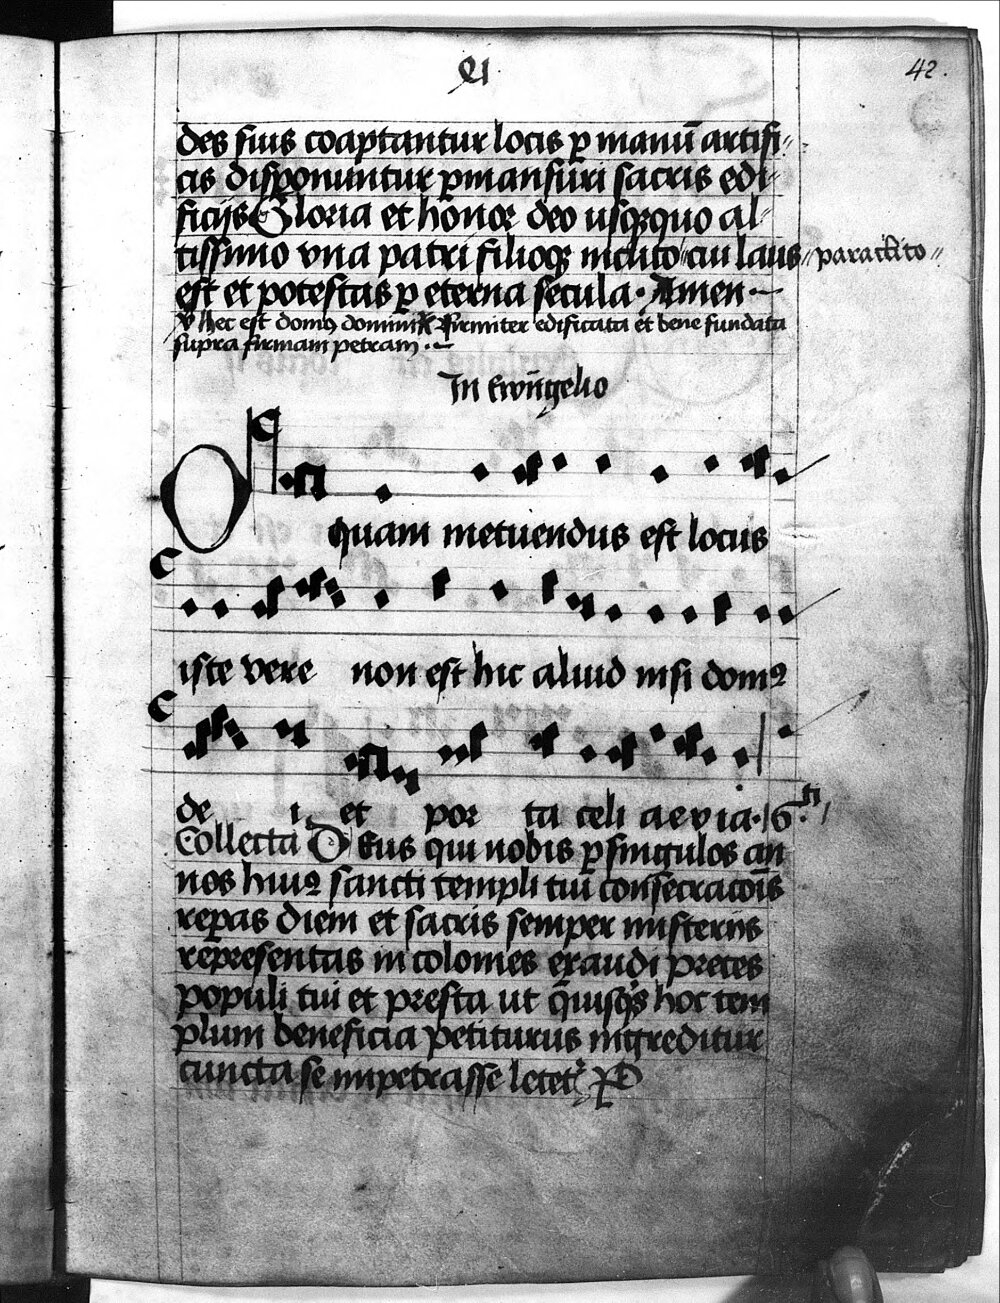 CI
42.
des suis coaptantur locis p̱ manū artifi⸗
cis disponuntur p̱mansuri sacris edi⸗
ficijs Gloria et honor deo usq̱quo al⸗
tissimo vna patri filioq̱ inclito cui laus paraclito
est et potestas p̱ eterna secula. Amen
v hec est domꝰ domini R firmiter edificata et bene fundata
supra firmam petram.
In Ewn̄gelio
O quam metuendus est locus
iste vere non est hic aliud nisi domꝰ
de i. et por ta celi aevia. 6.ti
Collecta Deus qui nobis p̱ singulos an
nos huiꝰ sancti templi tui consecracōis
rep̱as diem et sacris semper misteriis
representas incolomes exaudi preces
populi tui et presta ut q̄uisq̄s hoc tem
plum beneficia petiturus ingreditur
cuncta se impetrasse letet᷑ P